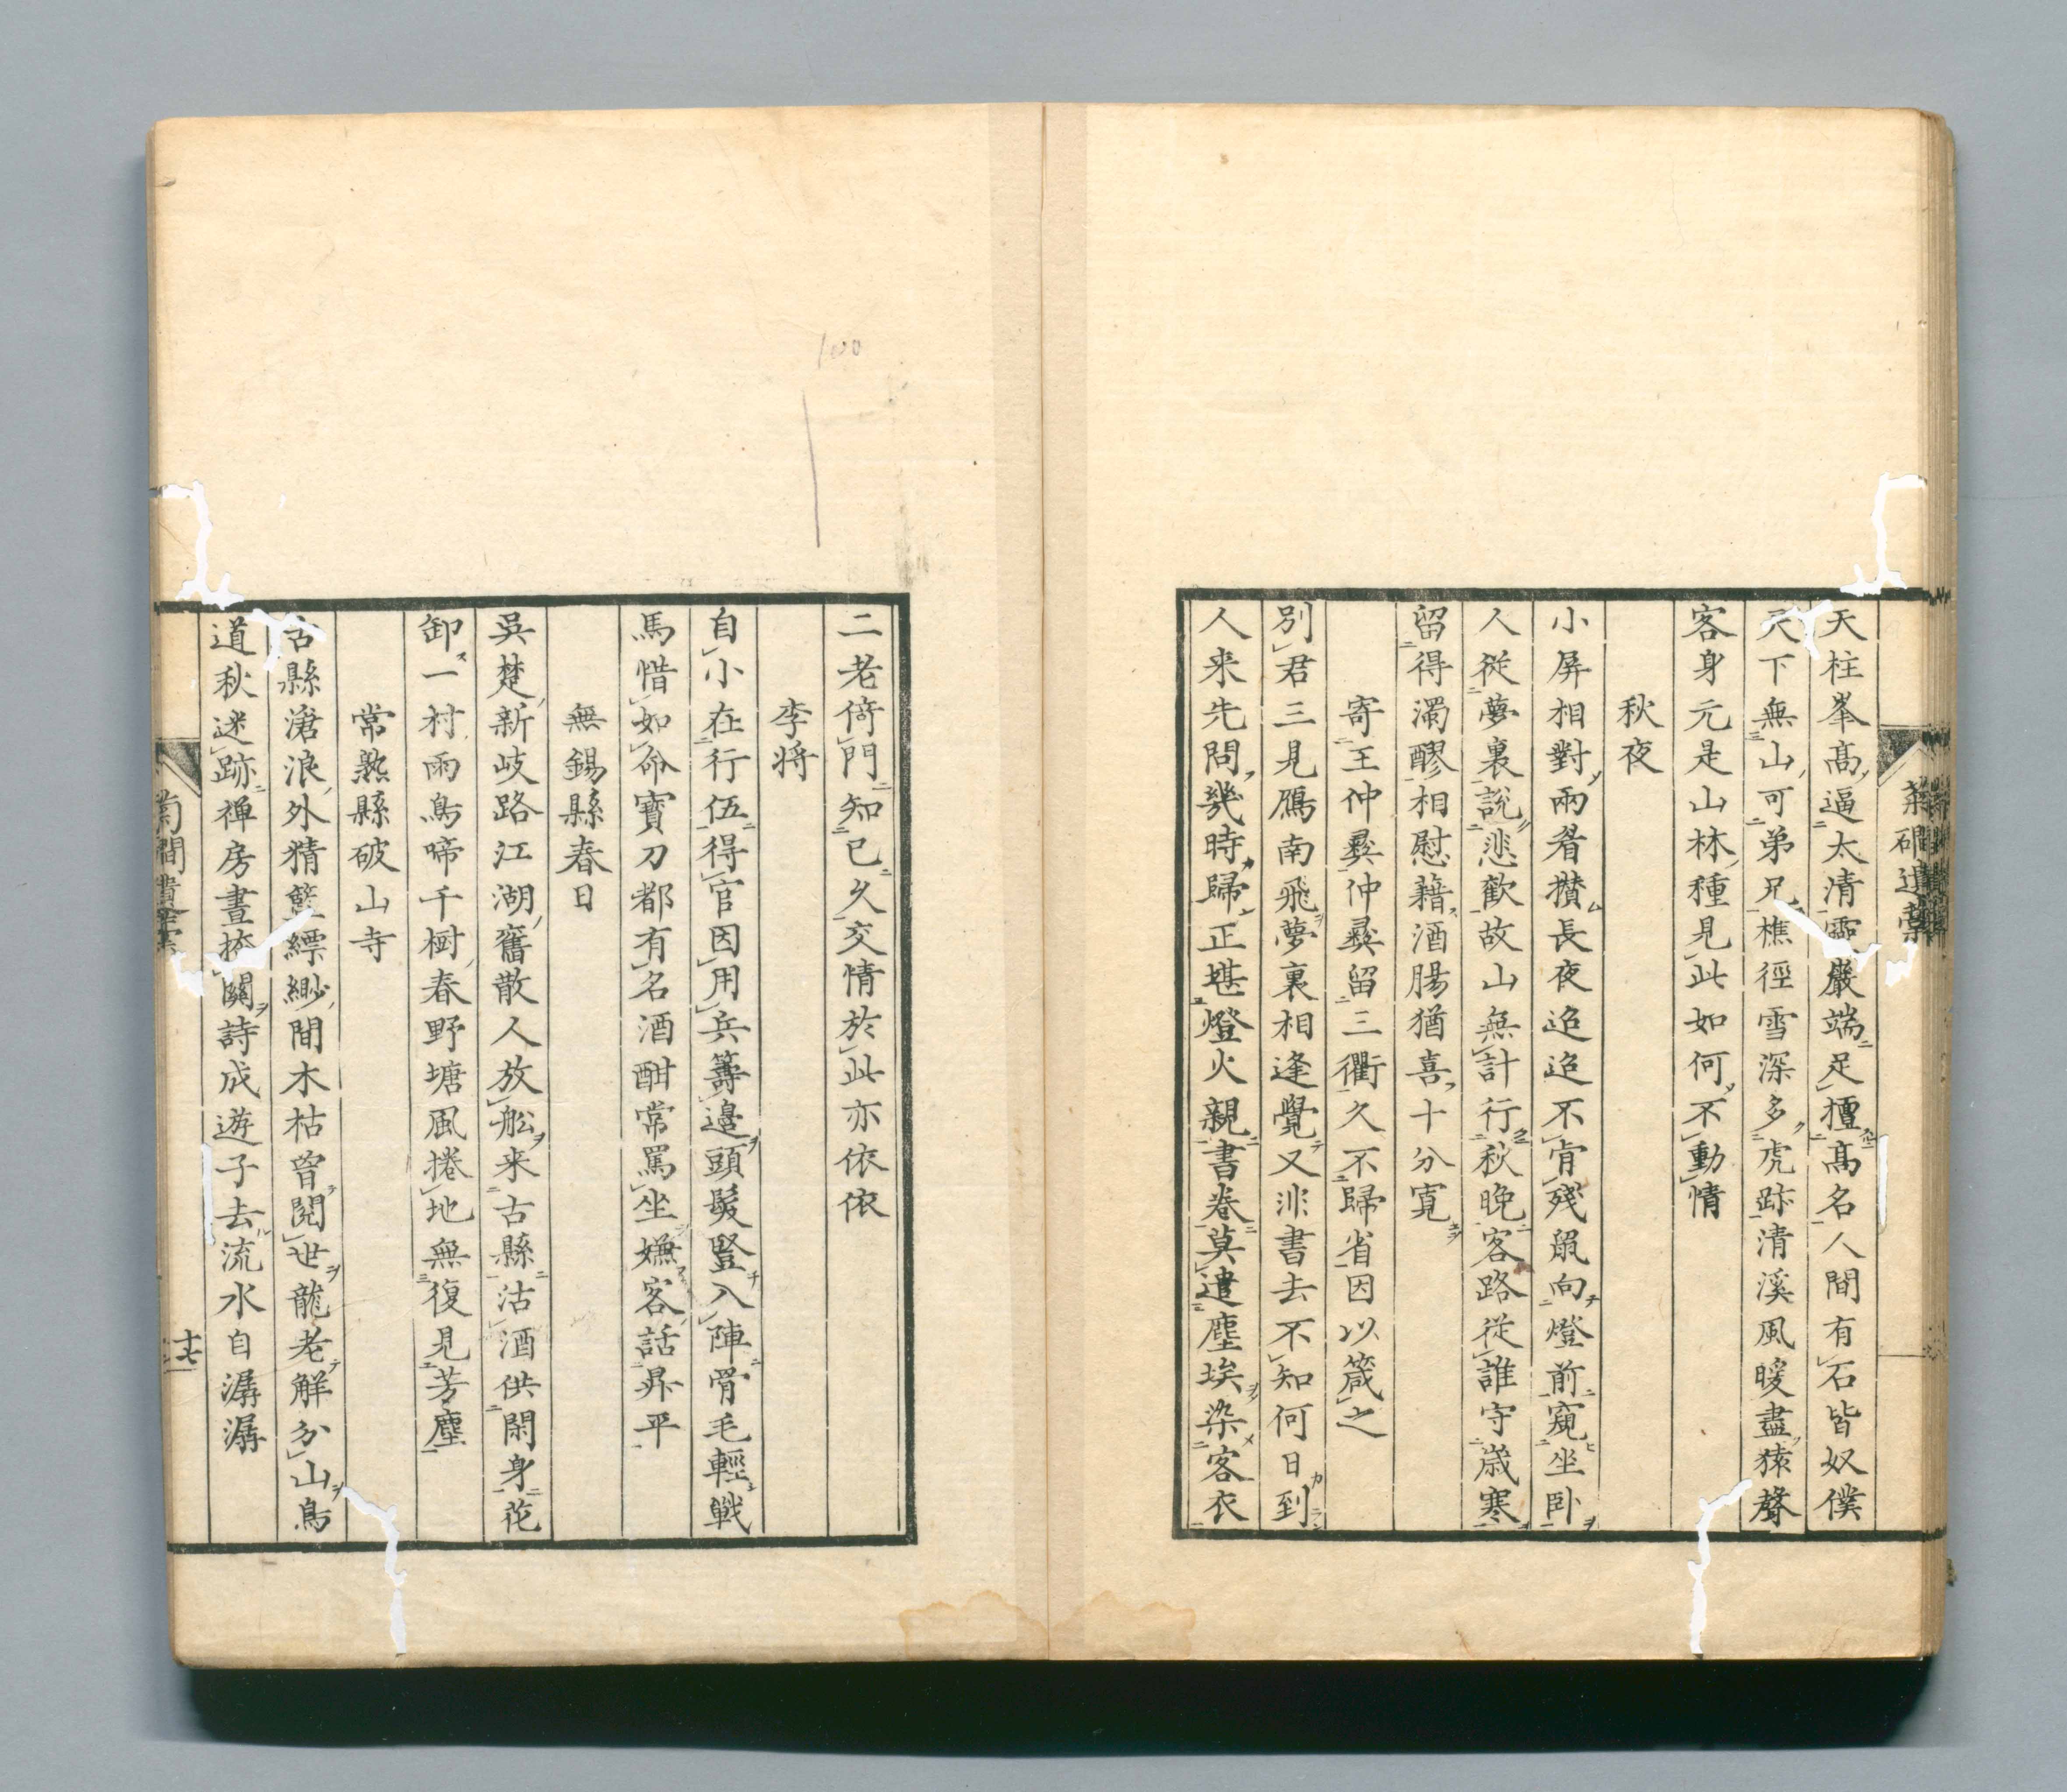 天柱峯高逼太清靈巖端足擅高名人間有石皆奴僕
天下無山可弟兄樵徑雪深多虎跡清溪風暖盡猿聲
客身元是山林種見此如何不動情
秋夜
小屏相對兩眉攅長夜迢迢不肯殘䑕向燈前窺坐卧
人從夢裏説悲歡故山無計行秋晚客路從誰守歳寒
留得濁醪相慰藉酒腸猶喜十分寛
寄王仲彛仲彛留三衢久不歸省因以箴之
別君三見鴈南飛夢裏相逢覺又非書去不知何日到
人来先問幾時歸正堪燈火親書卷莫遣塵埃染客衣
二老倚門知已久交情於此亦依依
李将
自小在行伍得官因用兵籌邉頭髮豎入陣骨毛輕戦
馬惜如命寳刀都有名酒酣常罵坐嫌客話昇平
無錫縣春日
吳楚新岐路江湖舊散人放舩来古縣沽酒供閑身花
卸一村雨鳥啼千樹春野塘風捲地無復見芳塵
常熟縣破山寺
古縣滄浪外精藍縹緲間木枯曾閲世龍老解分山鳥
道秋迷跡禅房晝掩關詩成遊子去流水自潺潺
十七